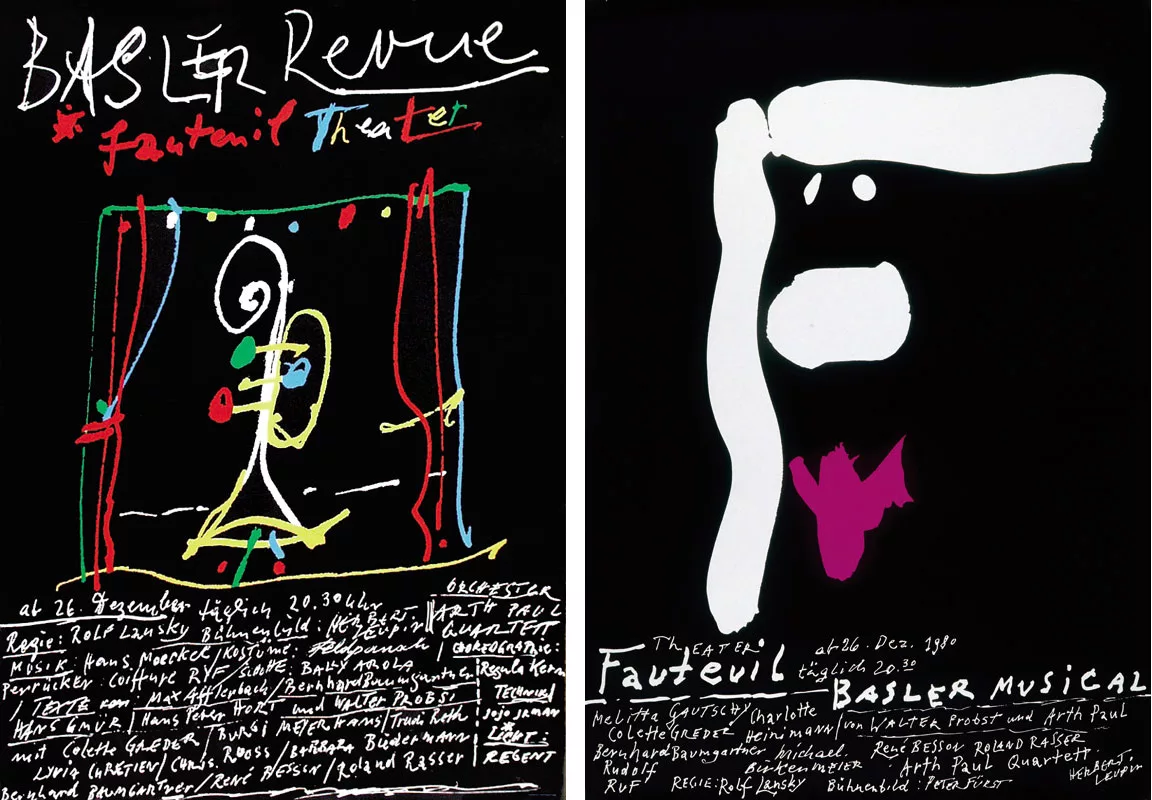 BASLER Revue
* fauteuil Theater
ab 26. Dezember täglich 20.30 Uhr
Regie: Rolf Lansky Bühnenbild: HERBERT LEUPIN
MUSIK: Hans Moeckel / Kostüme:
Perrücken: Coiffure RYF / SCHUHE: BALLY AROLA
/ TEXTE von MAX Afflerbach / Bernhard Baumgartner
HANS GMÜR / Hans Peter HORT und WALTER PROBST
mit Colette GREDER / BURGI MEIERHANS / Trudi Roth
CHRETIEN / CHRIS. ROOSS / BARBARA BüdERMANN
Bernhard BAUMGARTNER / RENÉ BESSON / Roland Rasser
ORCHESTER
ARTH PAUL
QUARTETT
CHOREOGRAPHIE:
Regula Kern
TECHNIK:
LICHT:
REGENT
THEATER:
Fauteuil
ab 26. Dez. 1980
täglich 20.30
BASLER MUSICAL
Melitta GAUTSCHY / Charlotte
Colette GREDER / Heinimann / von WALTER Probst und Arth Paul
Bernhard Baumgartner Michael René BESSON ROLAND RASSER
Rudolf BIRKENMEIER Arth Paul Quartett
RUF REGIE: Rolf Lansky Bühnenbild: PETER FÜRST
HERBERT LEUPIN